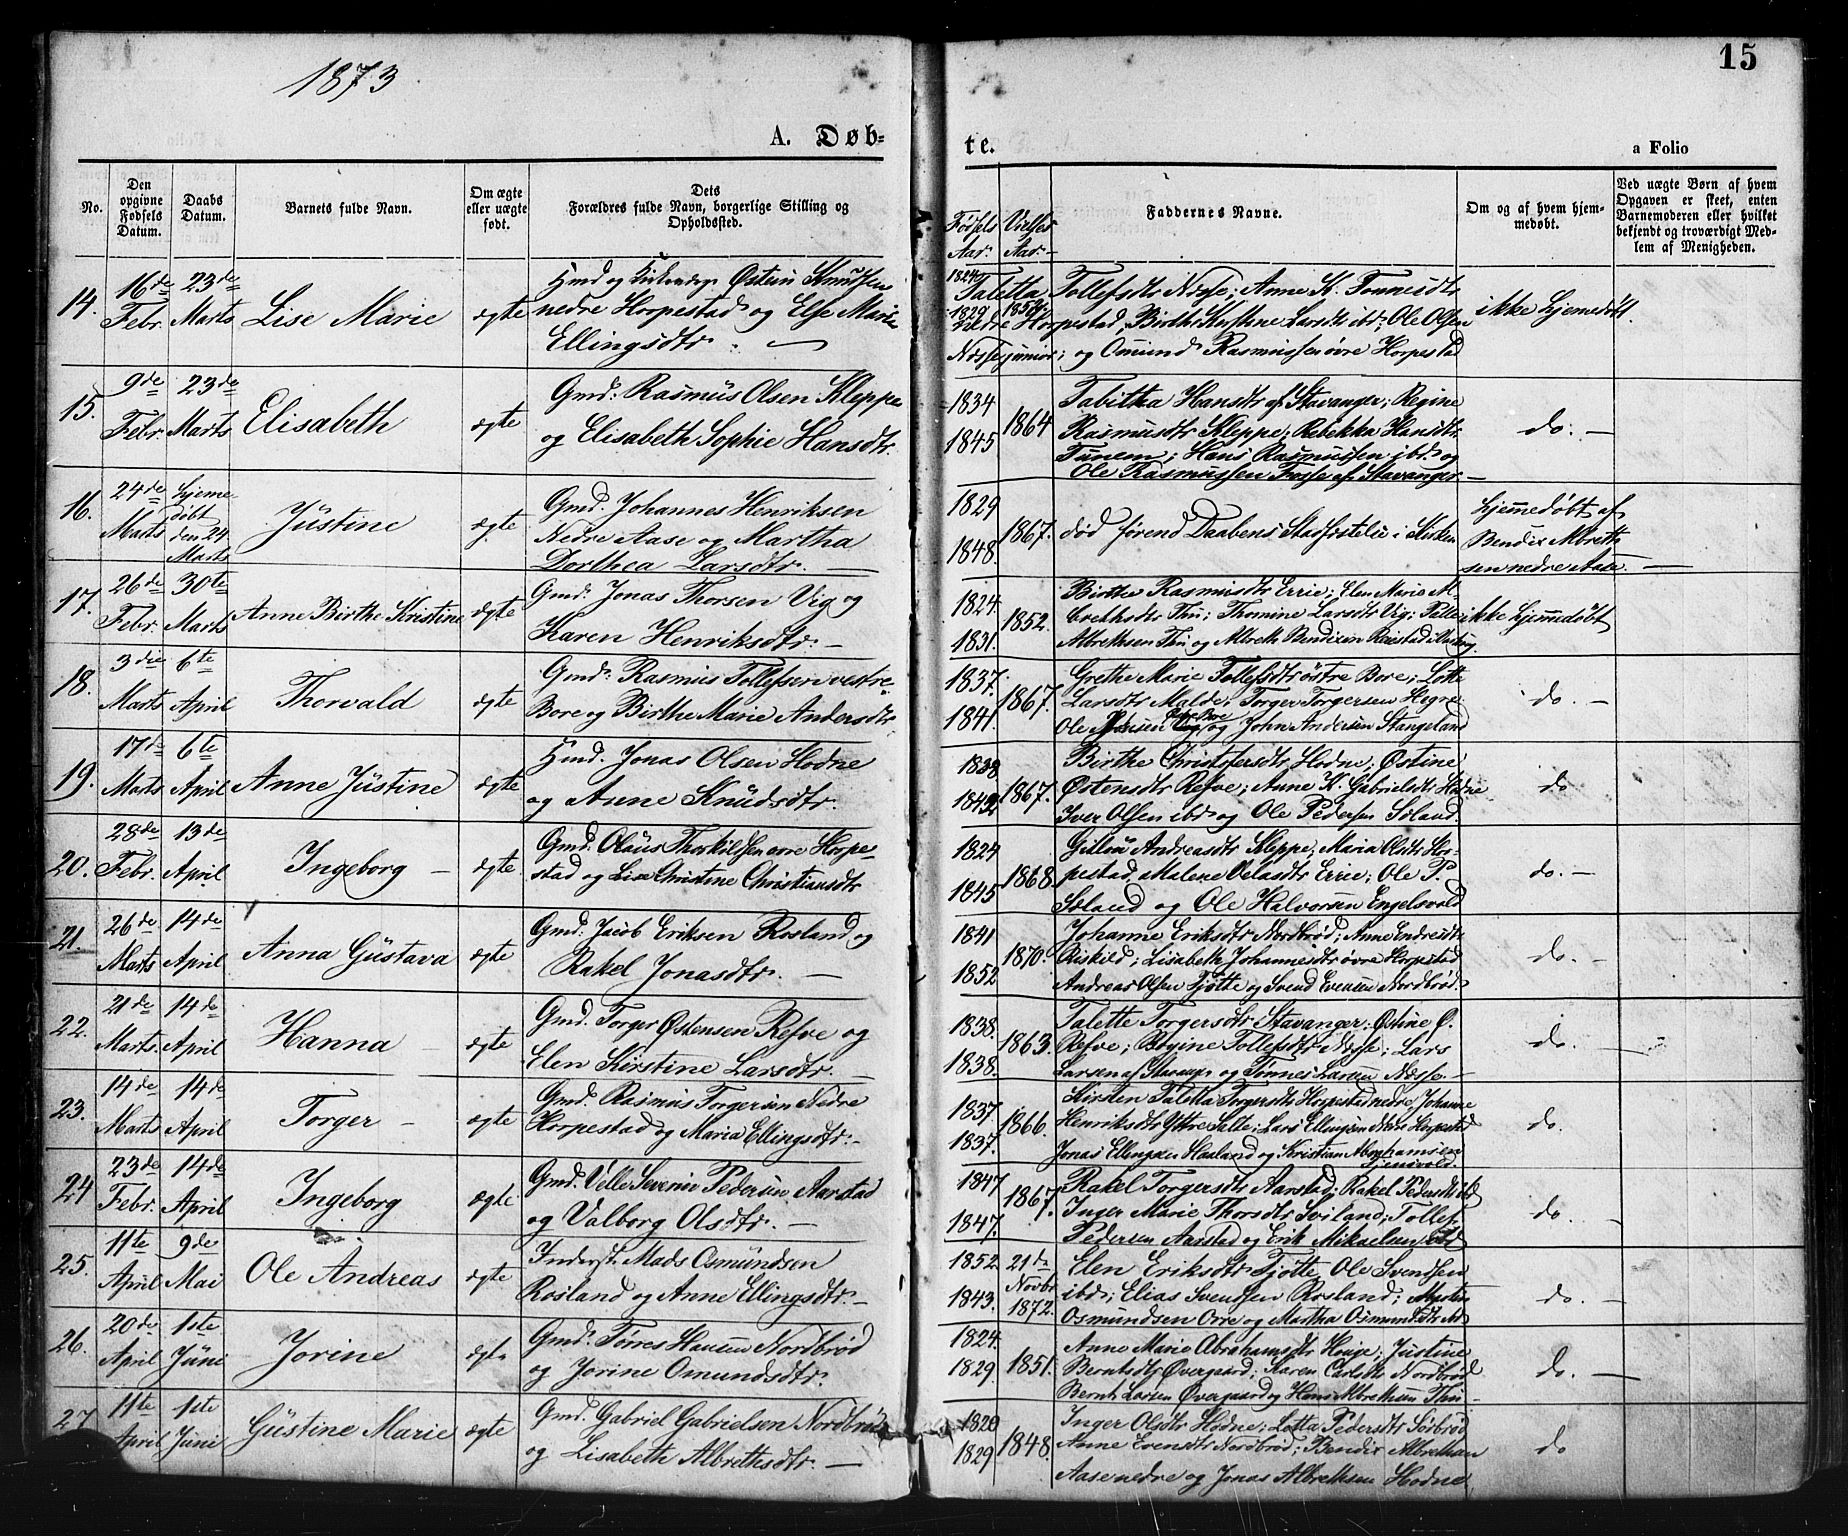 1873
15
A. Døb-
te.
a Folio
No.
Den opgivne Fødsels Datum.
Daabs Datum.
Barnets fulde Navn.
Om ægte eller uægte født.
Dets Forældres fulde Navn, borgerlige Stilling og Opholdssted.
Fødsels Aar.
Vielses Aar.
Faddernes Navne.
Om og af hvem hjemmedøbt.
Ved uægte Børn af hvem Opgaven er skeet, enten Barnemoderen eller hvilket bekjendt og troværdigt Medlem af Menigheden.
14. 16de Febr. 23de Marts Lise Marie ægte Hmd og Østein Knudsen
nedre Horpestad og Else Marie
Ellingsdtr.
1824 1829 1852
Taletta Tollefsdtr Næsse; Anne K. Tønnesdtr
nedre Horpestad, Birthe Larsdtr ibd; Ole Olsen
Næsse junior; og Omund Rasmussen øvre Horpestad
ikke hjemedøbt.
15. 9de Febr. 23de Marts Elisabeth ægte Gmd: Rasmus Olsen Kleppe
og Elisabeth Sophie Hansdtr.
1834 1845 1864
Tabitha Hansdtr af Stavanger; Regine
Rasmusdtr Kleppe; Rebekka Hansdtr
Tunem; Hans Rasmussen ibd og
Ole Rasmussen Fosse af Stavanger
do.
16. 24de Marts hjemedøbt den 24 Marts Jüstine ægte Gmd. Johannes Henriksen
Nedre Aase og Martha
Dorthea Larsdtr.
1829 1848. 1867.
død førend Daabens Stadfæstelse i Kirken
hjemmedøbt af
Bendix Albretsen
nedre Aase.
17. 26de Febr. 30te Marts Anne Birthe Kristine ægte Gmd. Jonas Thorsen Vig og
Karen Henriksdtr.
1824. 1831. 1852.
Birthe Rasmusdtr Errie; Elen Marie Albrethsdtr Thu; Thomine Larsdtr Vig;
Albrethsen Thu og Albreth Bendixen
ikke hjemmedøbt
18. 3die Marts 6te April Thorvald ægte Gmd: Rasmus Tollefsen vestre
Bore og Birthe Marie Andersdtr
1837. 1841. 1867.
Grethe Marie Tollefsdtr østre Bore; Lotte
Larsdtr Malde; Torger Torgersen Hogre
Ole og John Andersen Stangeland
do.
19. 17de Marts 6te April Anne Jüstine ægte Hmd. Jonas Olsen Hodne
og Anne Knudsdtr.
1838 1842 1867.
Birthe Christofersdtr Hodne; Østine
Østensdtr Refve; Anne K. Gabrielsdtr Hodne
Iver Olsen ibd og Ole Pedersen Søland.
do
20. 28de Febr. 13de April Ingeborg ægte Gmd. Olaüs Thorkildsen øvre Horpestad og Lise Christine Christiansdtr
1824 1845 1868.
Andreasdtr Kleppe; Maria Olsdtr Horpestad, Malene Velasdtr Errie; Ole P.
Søland og Ole Halvorsen Engelsvold
do.
21. 26de Marts 14de April Anna Güstava ægte Gmd. Jacob Eriksen Rosland og
Rakel Jonasdtr.
1841 1852 1870.
Johanne Eriksdtr Nordbrød; Anne Endresdtr
Riskild; Lisabeth Johannesdtr øvre Horpestad
Andreas Olsen Tjøtte og Svend Evensen Nordbrød.
do.
22. 21de Marts. 14de April Hanna ægte Gmd. Torger Østensen Refve og
Elen Kirstine Larsdtr.
1838. 1838. 1863.
Talette Torgersdtr Stavanger; Østine Ø.
Refve; Regine Tollefsdtr Næsse; Lars
Larsen af Stavanger og Tønnes Larsen Næsse
do.
23. 14de Marts 14de April Torger ægte Gmd. Rasmus Torgersen Nedre
Horpestad og Maria Ellingsdtr.
1837 1837. 1866.
Kirsten Taletta Torgersdtr Horpestad nedre; Johanne
Henriksdtr Yttre Salte; Lars Ellingsen Nedre Horpestad
Jonas Ellingsen og Kristian Abrahamsen
do.
24 23de Febr. 14de April Ingeborg ægte Gmd. Velle Severin Pedersen Aarstad
og Valborg Olsdtr.
1847 1847. 1867.
Rakel Torgersdtr Aarstad; Rakel Pedersdtr ibd
Inger Marie Thorsdtr Sviland; Tollef
Pedersen Aarstad og Erik Mikaelsen ibd
do.
25. 11te April 9de Mai Ole Andreas ægte Inderst. Mads Osmündsen
Rosland og Anne Ellingsdtr.
1852 1843. 21de Novbr 1872.
Elen Eriksdtr Tjøtte, Ole Svendsen
ibd; Elias Svendsen Rosland;
Osmundsen Orre og Martha Osmundsdtr
do.
26. 20de April 1ste Jüni Jorine ægte Gmd. Tørres Hansen Nordbrød
og Jorine Omundsdtr.
1824. 1829 1851.
Anne Marie Abrahamsdtr; Justine
Berntsdtr Øvergaard; Karen Nordbrød
Bernt Larsen Øvergaard og Hans Albrethsen Thu
do.
27. 11te April 1ste Juni Güstine Marie ægte Gmd. Gabriel Gabrielsen Nordbrød
og Lisabeth Albrethsdtr.
1820 1829 1848.
Inger Olsdtr Hodne; Lotta Pedersdtr Sørbrød
Anne Evensdtr Nordbrød; Bendix Albrethsen
Aase nedre og Jonas Albrethsen Hodne.
do